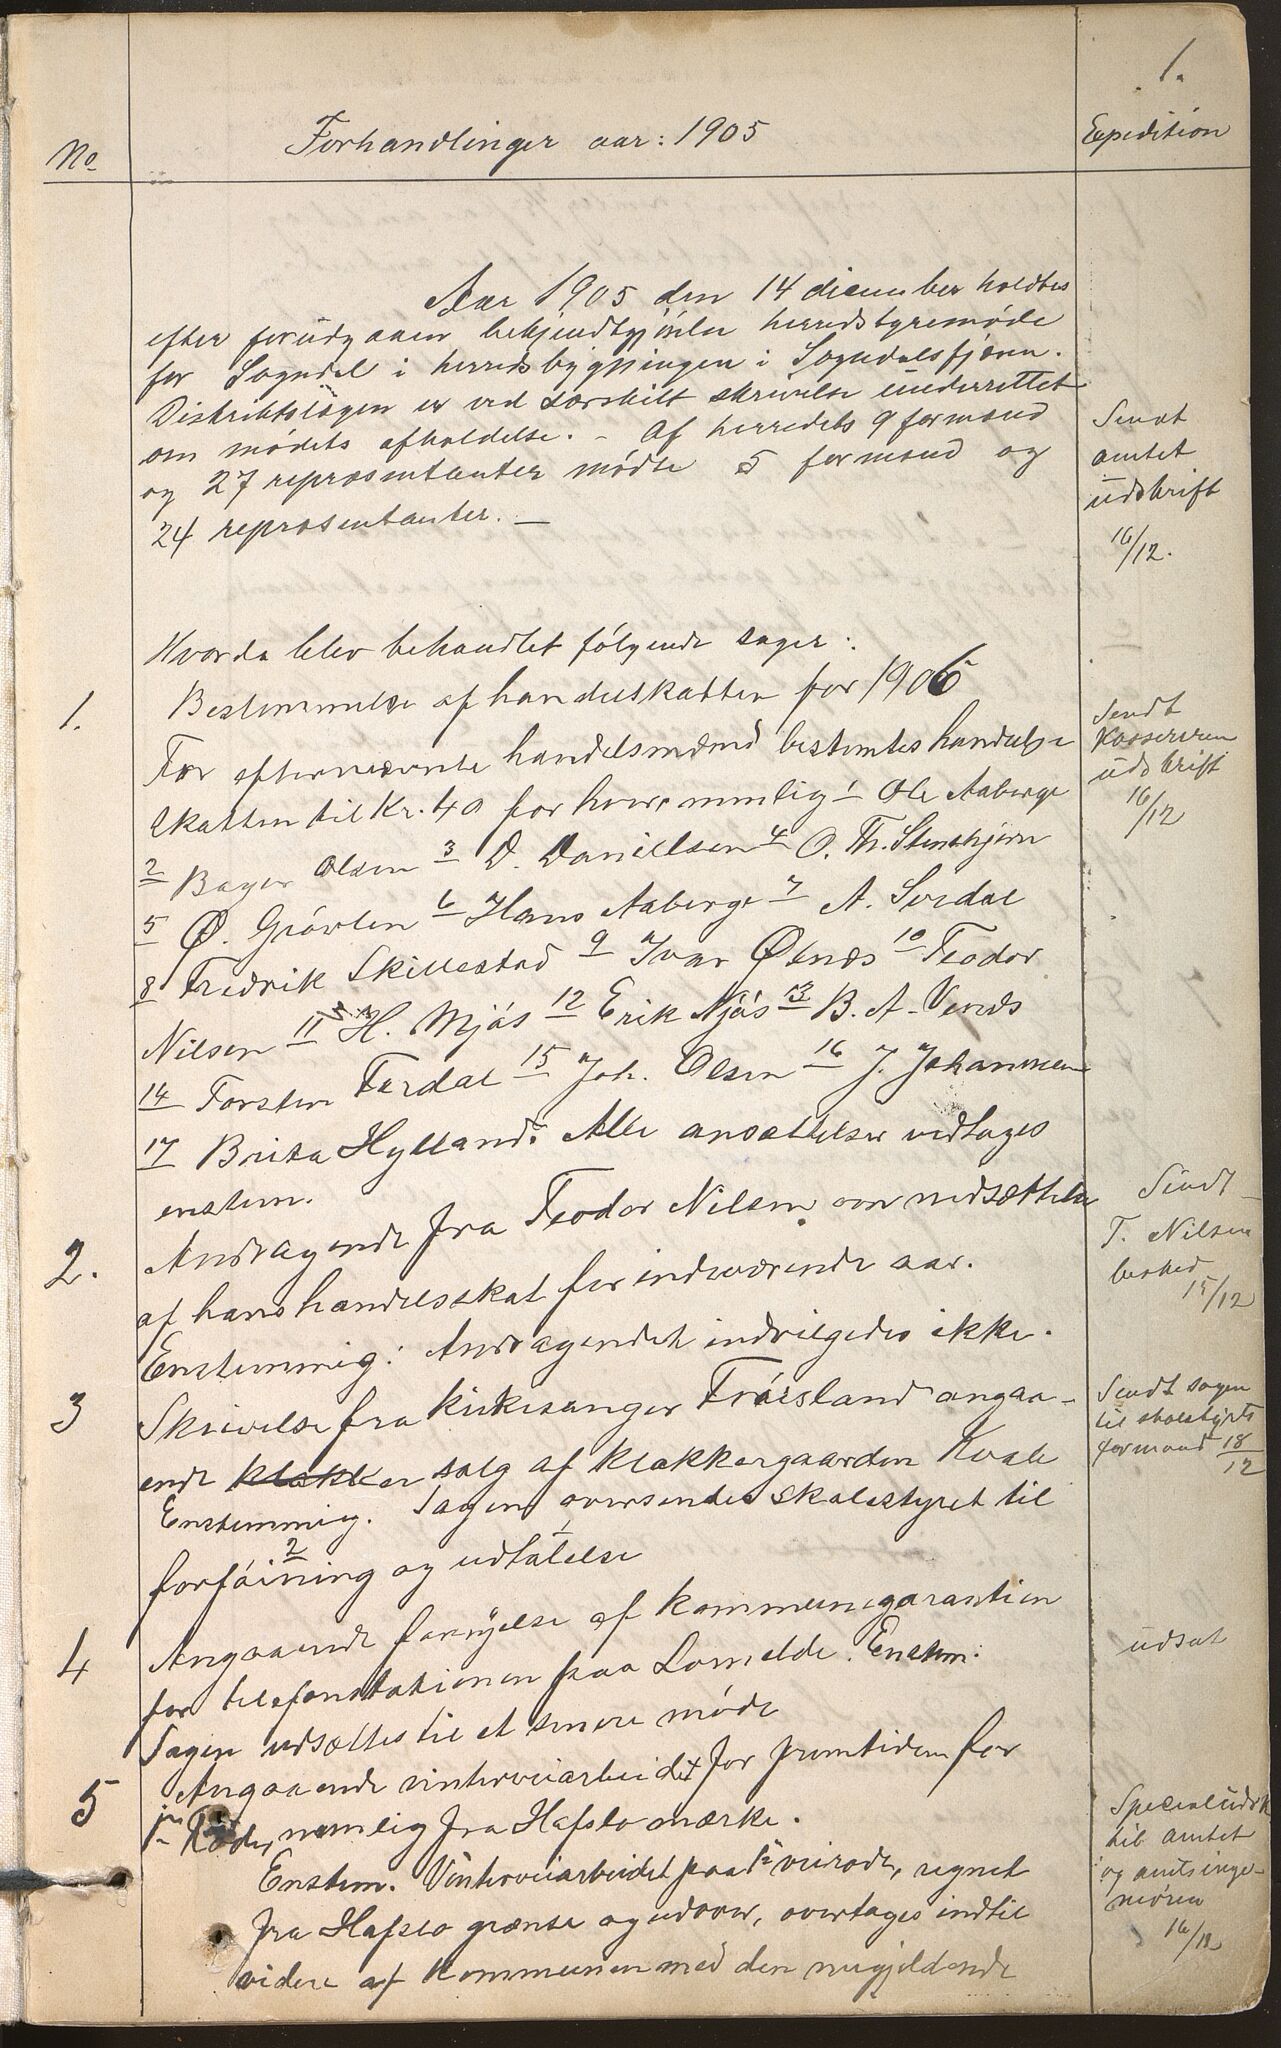 1.
No
Forhandlinger aar: 1905
Expedition
Aar 1905 den 14 december holdtes
efter forudgaaen bekjendtgjörelse herredstyremøde
for Sogndal i herredsbygningen i Sogndalsfjæren.
Distriktslægen er ved særskilt skrivelse underrettet
om mødets afholdelse. - Af herredets 9 formænd
og 27 repræsentanter mødte 5 formænd og
24 repræsentanter. —
Sendt
amtet
udskrift
16/12.
Hvorda blev behandlet følgende sager:
1. Bestemmelse af handelskatten for 1906
For efternævnte handelsmænd bestemtes handels-
skatten til Kr. 40 for hver nemlig 1 Ole Aaberge
2 Bayer Olsen 3 D. Danielsen 4 O. Th. Stenehjem
5 Ø. Grövlen 6 Hans Aaberge 7 A. Sverdal
8 Fredrik Skillestad 9 Ivar Ølnæs 10 Teodor
Nilsen 11 H. Njøs 12 Erik Njøs 13 B. A. Venæs
14 Torsten Furdal 15 Joh. Olsen 16 J. Johannesen
17 Brita Hylland. Alle ansættelser vedtages
enstem.
Sendt
Kassereren
udskrift
16/12
2. Andragende fra Teodor Nilsen om nedsættelse
af hans handelsskat for indeværende aar.
Enstemmig: Andragendet indvilgedes ikke.
Sendt
T. Nilsen
besked
15/12
3 Skrivelse fra kirkesanger Frøisland angaa-
ende klokker salg af klokkergaarden Kvale
Enstemmig. Sagen oversendes skolestyret til
forføining og udtalelse
Sendt sagen
til skolstyrets
formand 18/12
4 Angaaende fornyelse af kommunegarantien
for telefonstationen paa Lomelde. Enstem.
Sagen udsættes til et senere møde
udsat
5 Angaaende vinterveiarbeidet for fremtiden for
1ste Rode, nemlig fra Hafslo mærke.
Enstem. Vinterveiarbeidet paa 1ste veirode, regnet
fra Hafslo grænse og udover, overtages indtil
videre af kommunen med den nugjeldende
Specialudsk
til amtet
og amtsinge-
niøren
16/12